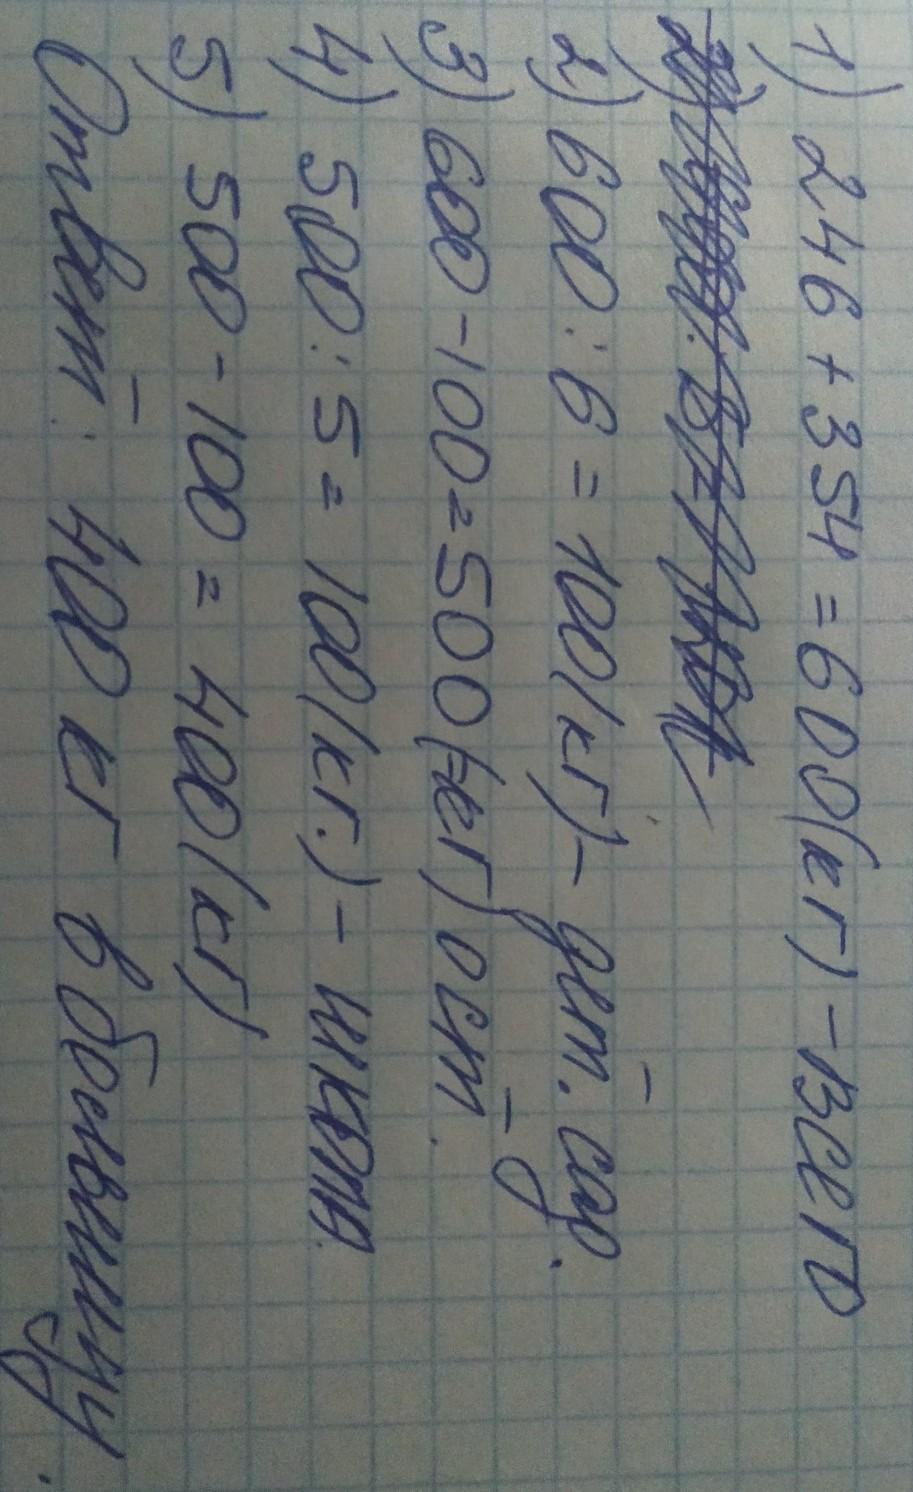 1) 246 + 354 = 600 (кг) - всего
2) 600 : 6 = 100 (кг) - дет. сад.
3) 600 - 100 = 500 (кг) ост.
4) 500 : 5 = 100 (кг.) - школы.
5) 500 - 100 = 400 (кг)
Ответ: 400 кг в больницу.